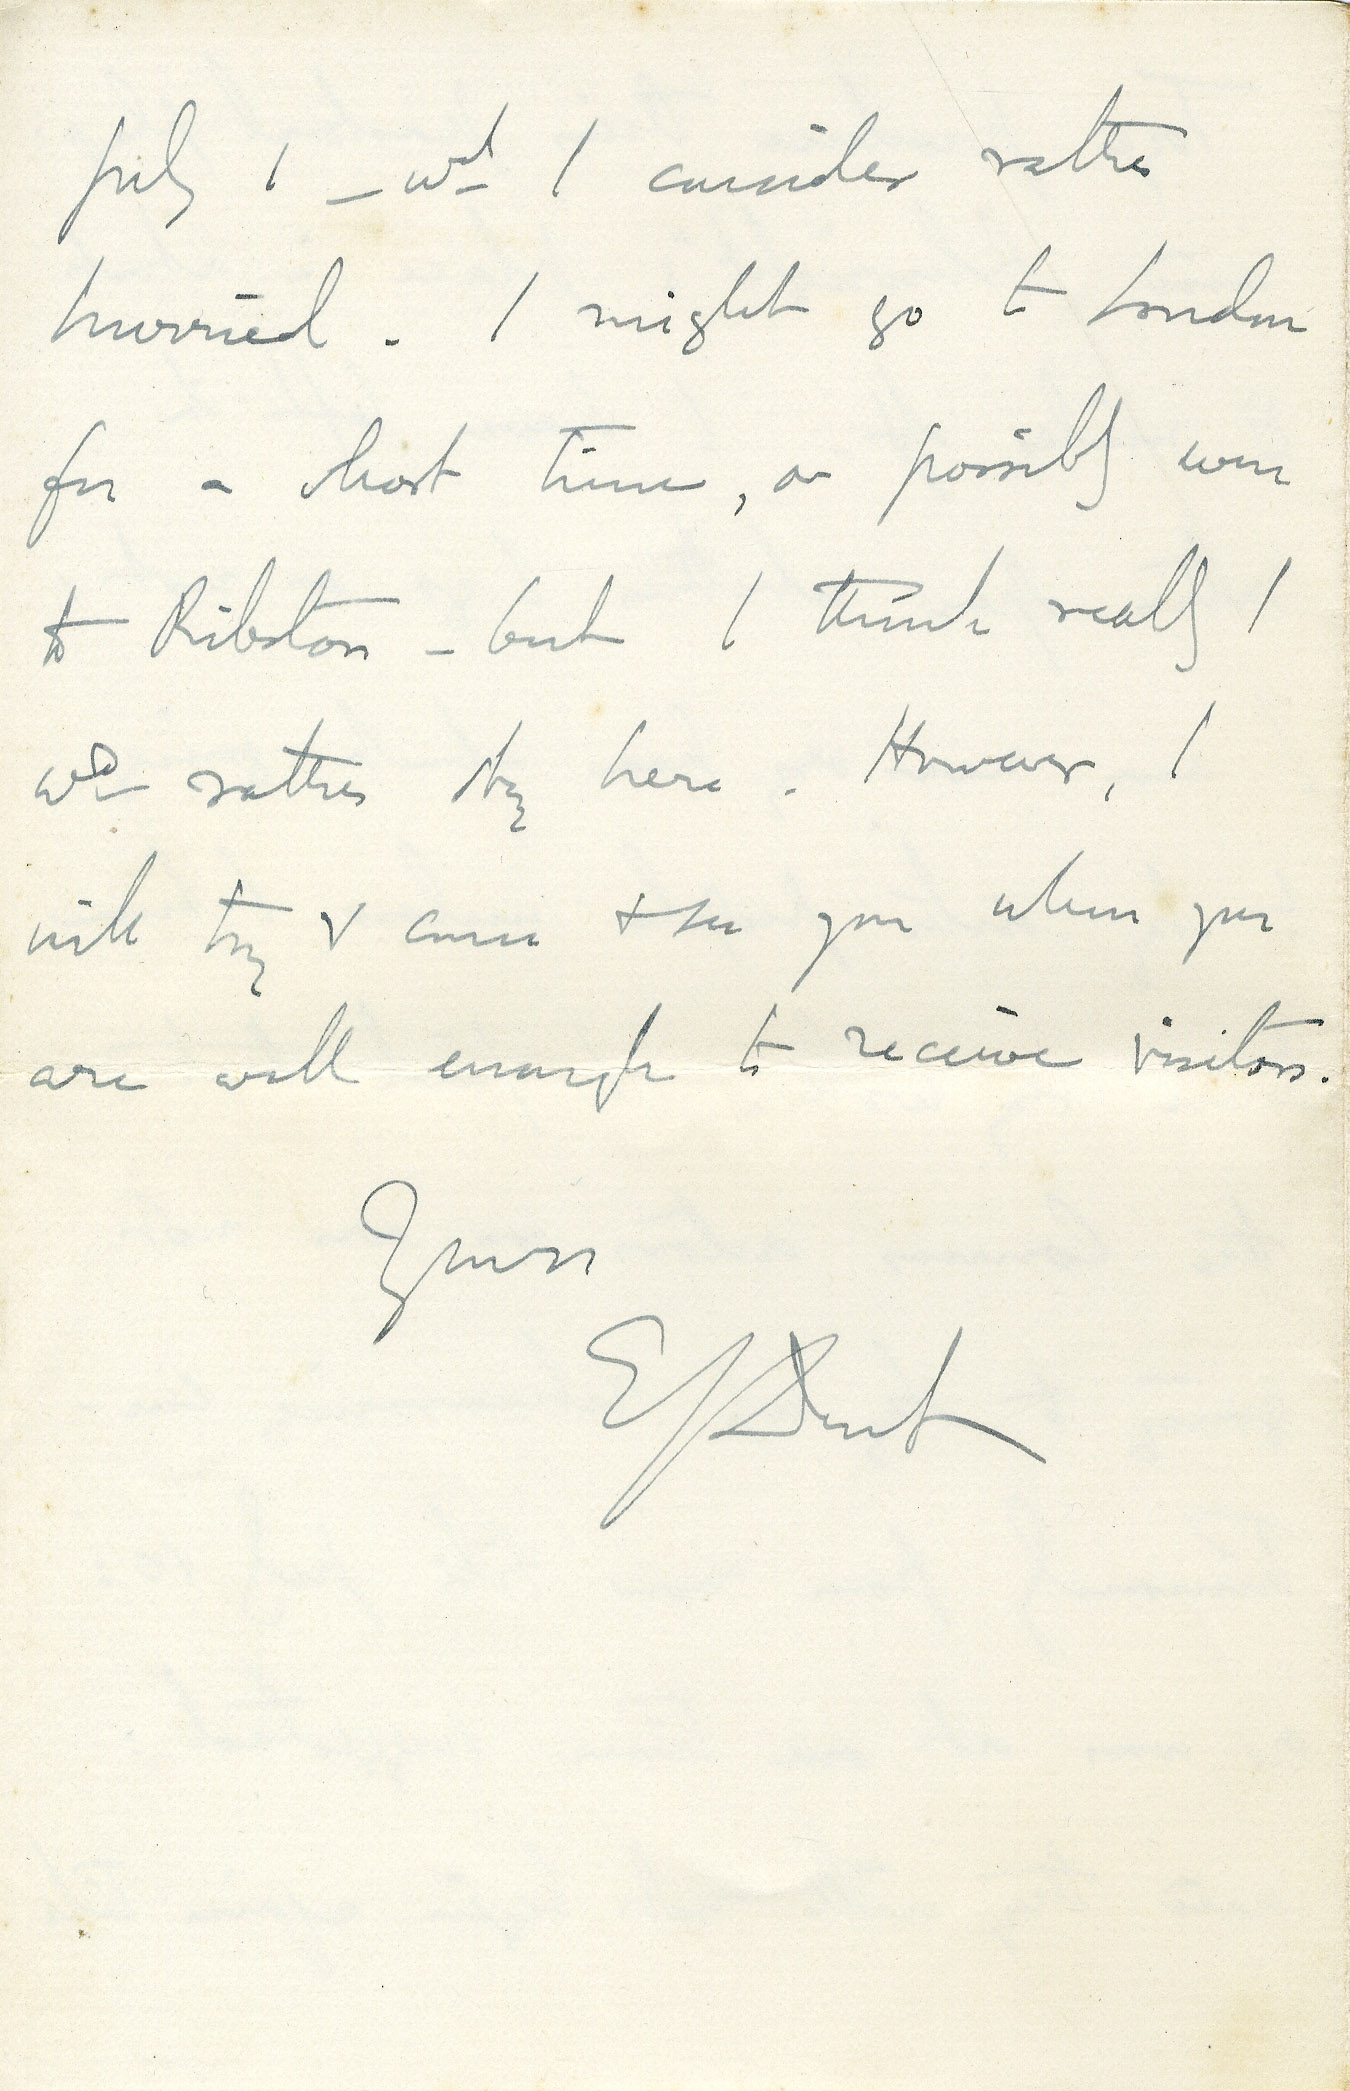 July 1 – wh I consider rather
hurried. I might go to London
for a short time, or possibly even
to Ribston – but I think really I
wd rather stay here. However, I
will try & come & see you when you
are well enough to receive visitors.
Yours
EJDent